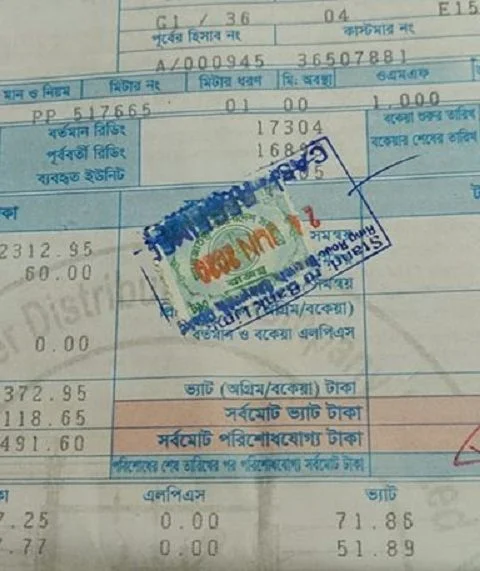 G1 / 36 04 E15
পূর্বের হিসাব নং কাস্টমার নং
A/000945 36507881
মান ও নিয়ম মিটার নং মিটার ধরণ মি: অবস্থা ওএমএফ
PP 517665 01 00 1.000
বর্তমান রিডিং 17304 বকেয়া শুরুর তারিখ
পূর্ববর্তী রিডিং 168 বকেয়ার শেষের তারিখ
ব্যবহৃত ইউনিট
কা
2312.95 সমন্বয়
60.00
সমন্বয়
(অগ্রিম/বকেয়া)
0.00 বর্তমান ও বকেয়া এলপিএস
372.95 ভ্যাট (অগ্রিম/বকেয়া) টাকা
118.65 সর্বমোট ভ্যাট টাকা
491.60 সর্বমোট পরিশোধযোগ্য টাকা
পরিশোধের শেষ তারিখের পর পরিশোধযোগ্য সর্বমোট টাকা
কা এলপিএস ভ্যাট
7.25 0.00 71.86
.77 0.00 51.89
CASH RECEIVED
24 JUN 2020
Standard Bank Limited
Ring Road